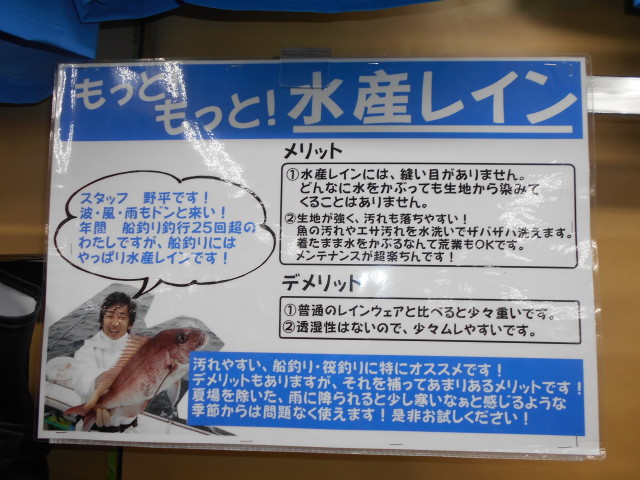 もっと、
もっと！水産レイン
メリット
①水産レインには、縫い目がありません。
どんなに水をかぶっても生地から染みて
くることはありません。
②生地が強く、汚れも落ちやすい！
魚の汚れやエサ汚れを水洗いでザバザバ洗えます。
着たまま水をかぶるなんて荒業もOKです。
メンテナンスが超楽ちんです！
スタッフ　野平です！
波・風・雨もドンと来い！
年間　船釣り釣行25回超の
わたしですが、船釣りには
やっぱり水産レインです！
デメリット
①普通のレインウェアと比べると少々重いです。
②透湿性はないので、少々ムレやすいです。
汚れやすい、船釣り・筏釣りに特にオススメです！
デメリットもありますが、それを補ってあまりあるメリットです！
夏場を除いた、雨に降られると少し寒いなぁと感じるような
季節からは問題なく使えます！是非お試しください！